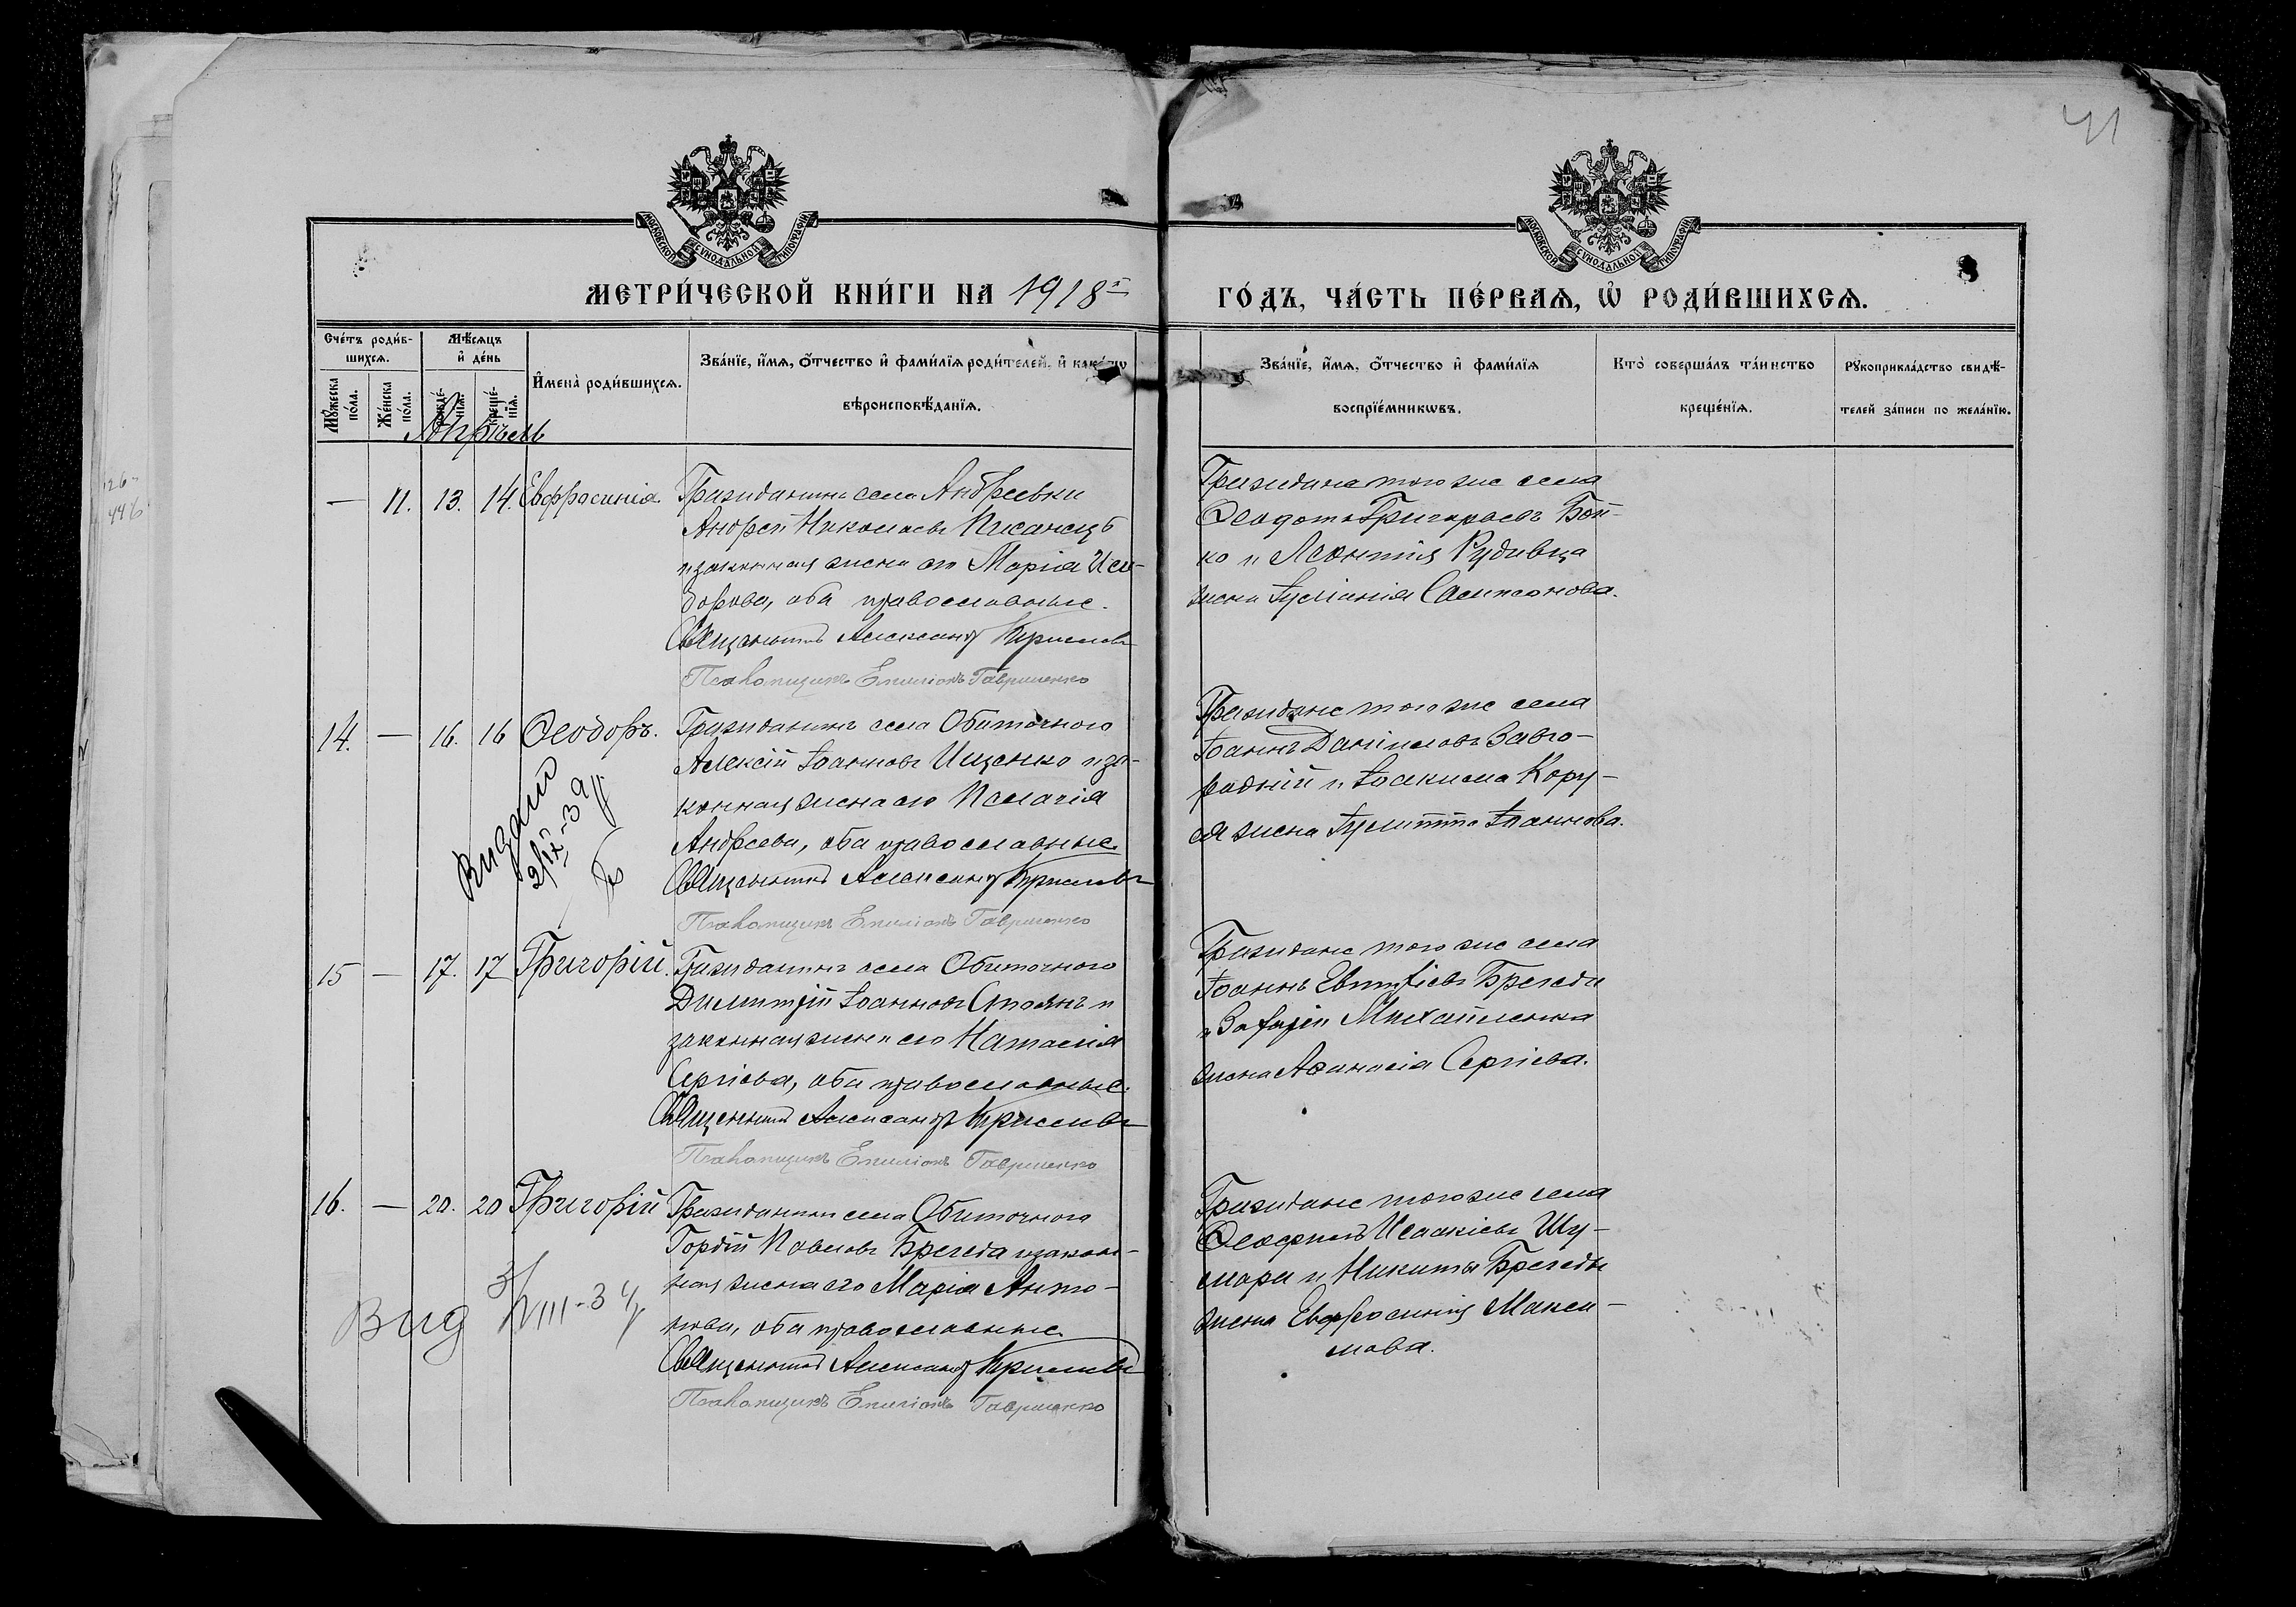 41
МОСКОВСКОЙ СѴНОДАЛЬНОЙ ТИПОГРАФІИ
МОСКОВСКОЙ СѴНОДАЛЬНОЙ ТИПОГРАФІИ
МЕТРИ́ЧЕСКОЙ КНИ́ГИ НА 1918й
ГО́ДЪ, ЧА́СТЬ ПЕ́РВАЯ, Ѿ РОДИ́ВШИХСѦ.
Сче́тъ роди́в-
шихсѧ.
Мꙋ́жеска по́ла.
Же́нска по́ла.
Мѣ́сѧцъ
и҆ де́нь
рожде́-нїѧ.
креще́-нїѧ.
И҆мена̀ роди́вшихсѧ.
Зва́нїе, и҆́мѧ, ѻ҆́тчество и҆ фами́лїѧ роди́телей, и҆ како́гѡ
вѣроисповѣ́данїѧ.
Зва́нїе, и҆́мѧ, ѻ҆́тчество и҆ фами́лїѧ
воспрїе́мникѡвъ.
Кто̀ соверша́лъ та́инство
креще́нїѧ.
Рꙋкоприкла́дство свидѣ́-
телей за́писи по жела́нїю.
Апрѣль
— 11. 13. 14. Евфросинія.
Гражданинъ села Андреевки
Андрей Николаевъ Писанецъ
и законная жена его Марія Иси-
дорова, оба православные.
Священникъ Александръ
Псаломщикъ Емиліанъ Гавриленко
Граждане того же села
Ѳеодотъ Григорьевъ Бой-
ко и Леонтія Рудивца
жена Іуліанія Сампсонова.
14. — 16. 16 Ѳеодоръ.
Гражданинъ села Обиточнаго
Алексій Іоанновъ Ищенко и за-
конная жена его Пелагія
Андреева, оба православные.
Священникъ Александръ
Псаломщикъ Емиліанъ Гавриленко
Граждане того же села
Іоаннъ Даніиловъ Завго-
родній и Іоакима Кору-
ся жена Іулитта Іоаннова.
Видано
15 — 17. 17 Григорій.
Гражданинъ села Обиточнаго
Димитрій Іоанновъ Стоянъ и
законная жена его Наталія
Сергіева, оба православные.
Священникъ Александръ
Псаломщикъ Емиліанъ Гавриленко
Граждане того же села
Іоаннъ Евтихіевъ Брегеда
и Захаріи Михайленка
жена Аѳанасія Сергіева.
16. — 20. 20 Григорій
Гражданинъ села Обиточнаго
Гордій Павловъ Брегеда и закон-
ная жена его Марія Анто-
нова, оба православные.
Священникъ Александръ
Псаломщикъ Емиліанъ Гавриленко
Граждане того же села
Ѳеофилъ Исаакіевъ Шу-
мара и Никиты Брегеды
жена Евфросинія Макси-
мова.
Вид 3/VIII-34